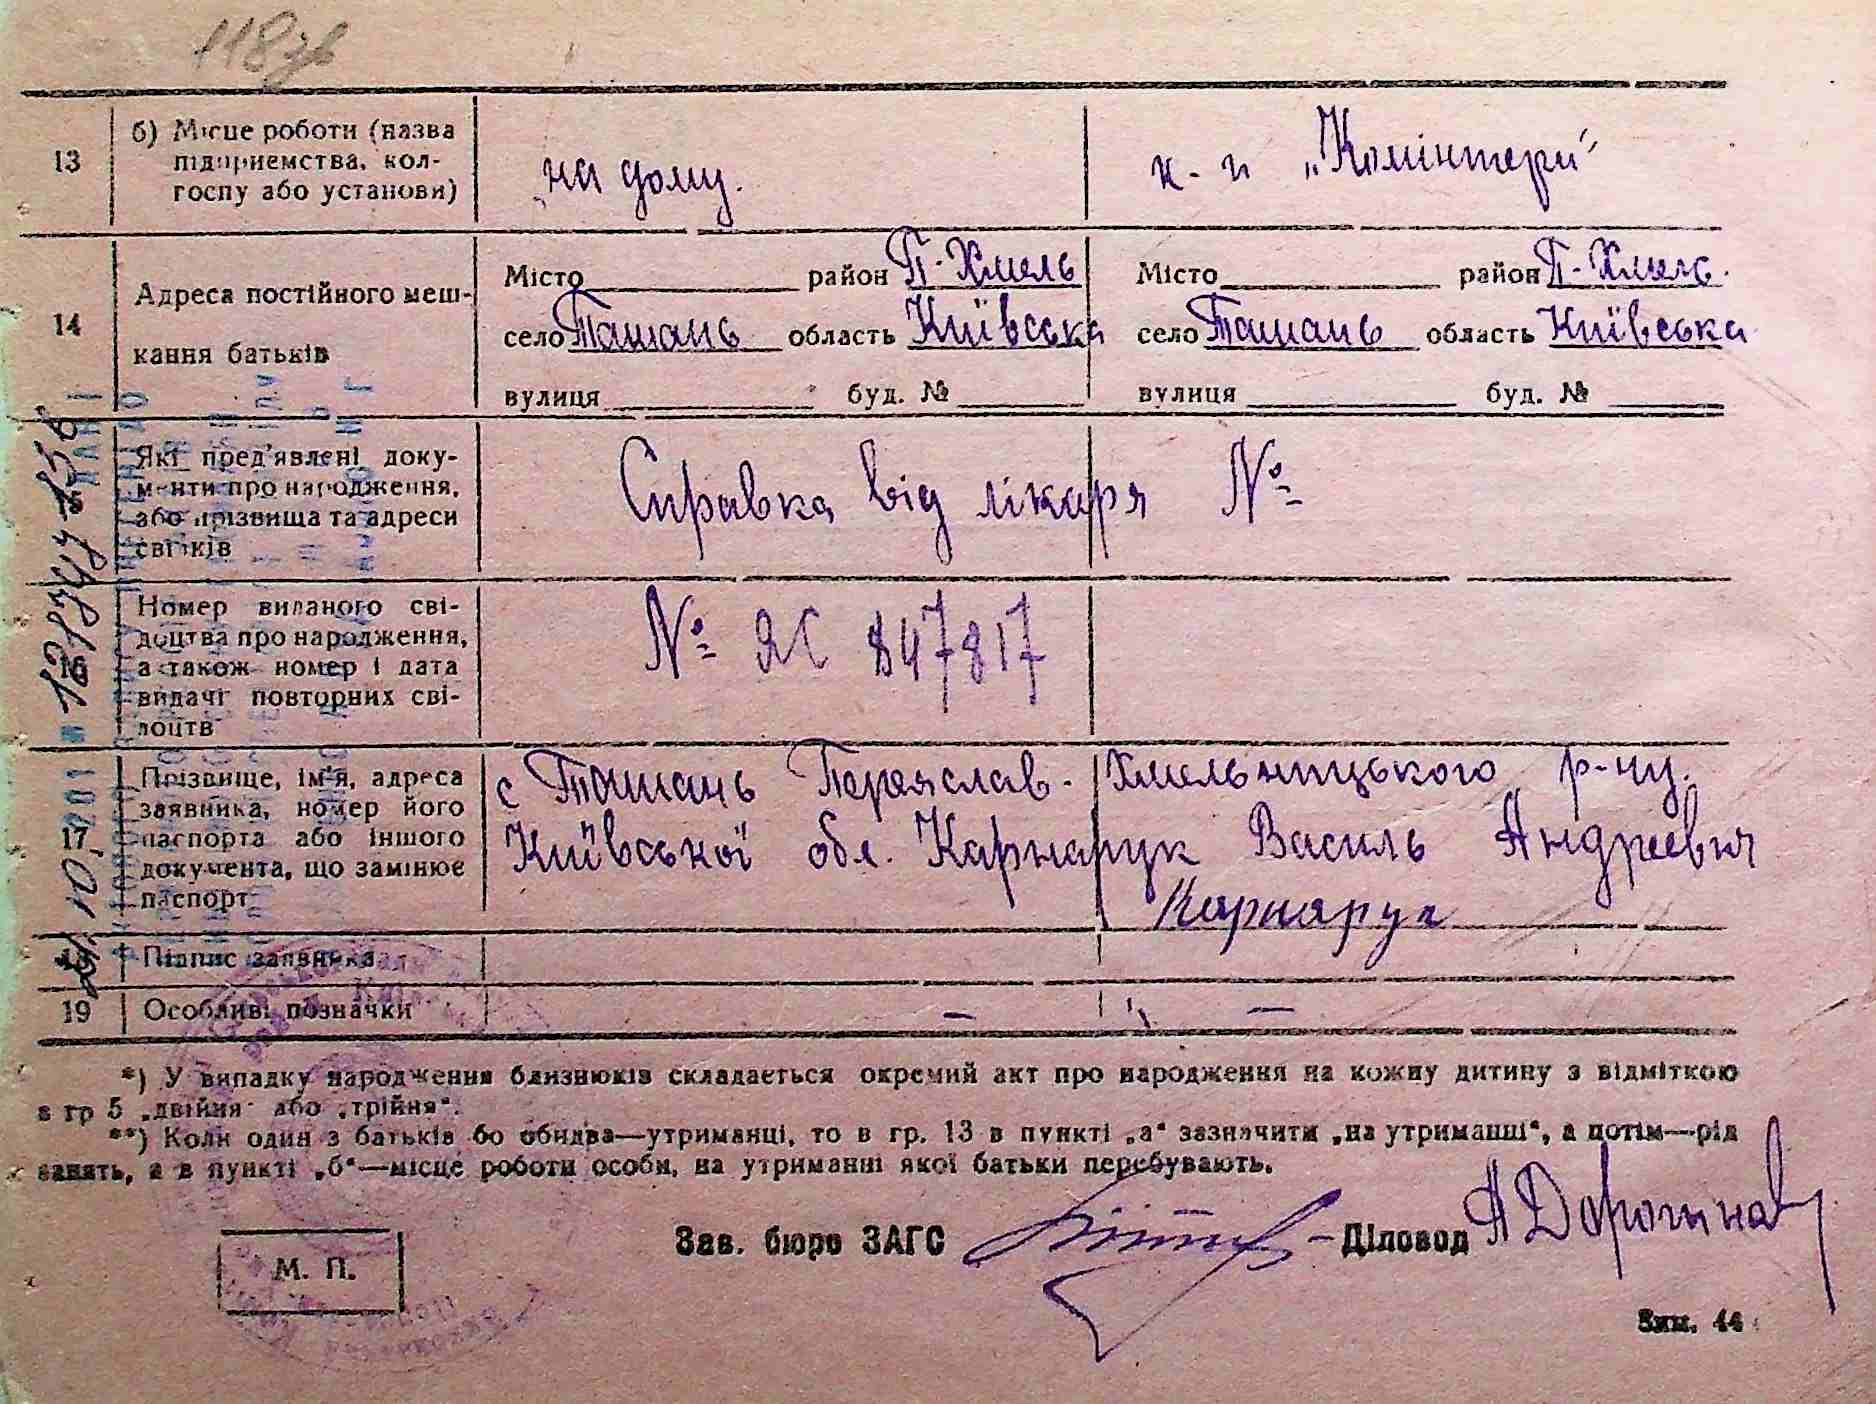 118зв
13
б) Місце роботи (назва
підприємства, кол-
госпу або установи)
на дому.
к-п „Комінтерн"
14
Адреса постійного меш-
кання батьків
Місто район П-Хмель
село Ташань область Київська
вулиця буд. №
Місто район П-Хмель.
село Ташань область Київська
вулиця буд. №
15
Які пред'явлені доку-
менти про народження,
або прізвища та адреси
свідків
Справка від лікаря №
16
Номер виданого сві-
доцтва про народження,
а також номер і дата
видачі повторних сві-
доцтв
№ ЯС 847817
17
Прізвище, ім'я, адреса
заявника, номер його
паспорта або іншого
документа, що замінює
паспорт
с Ташань Переяслав-Хмельницького р-ну.
Київської обл. Карнарук Василь Андреевич
Карнарук
18
Підпис заявника
19
Особливі позначки
— —
*) У випадку народження близнюків складається окремий акт про народження на кожну дитину з відміткою
в гр 5 „двійня" або „трійня".
**) Коли один з батьків бо обидва—утриманці, то в гр. 13 в пункті „а" зазначити „на утриманні", а потім—рід
занять, а в пункті „б"—місце роботи особи, на утриманні якої батьки перебувають.
Зав. бюро ЗАГС
Діловод
М. П.
Зам. 44